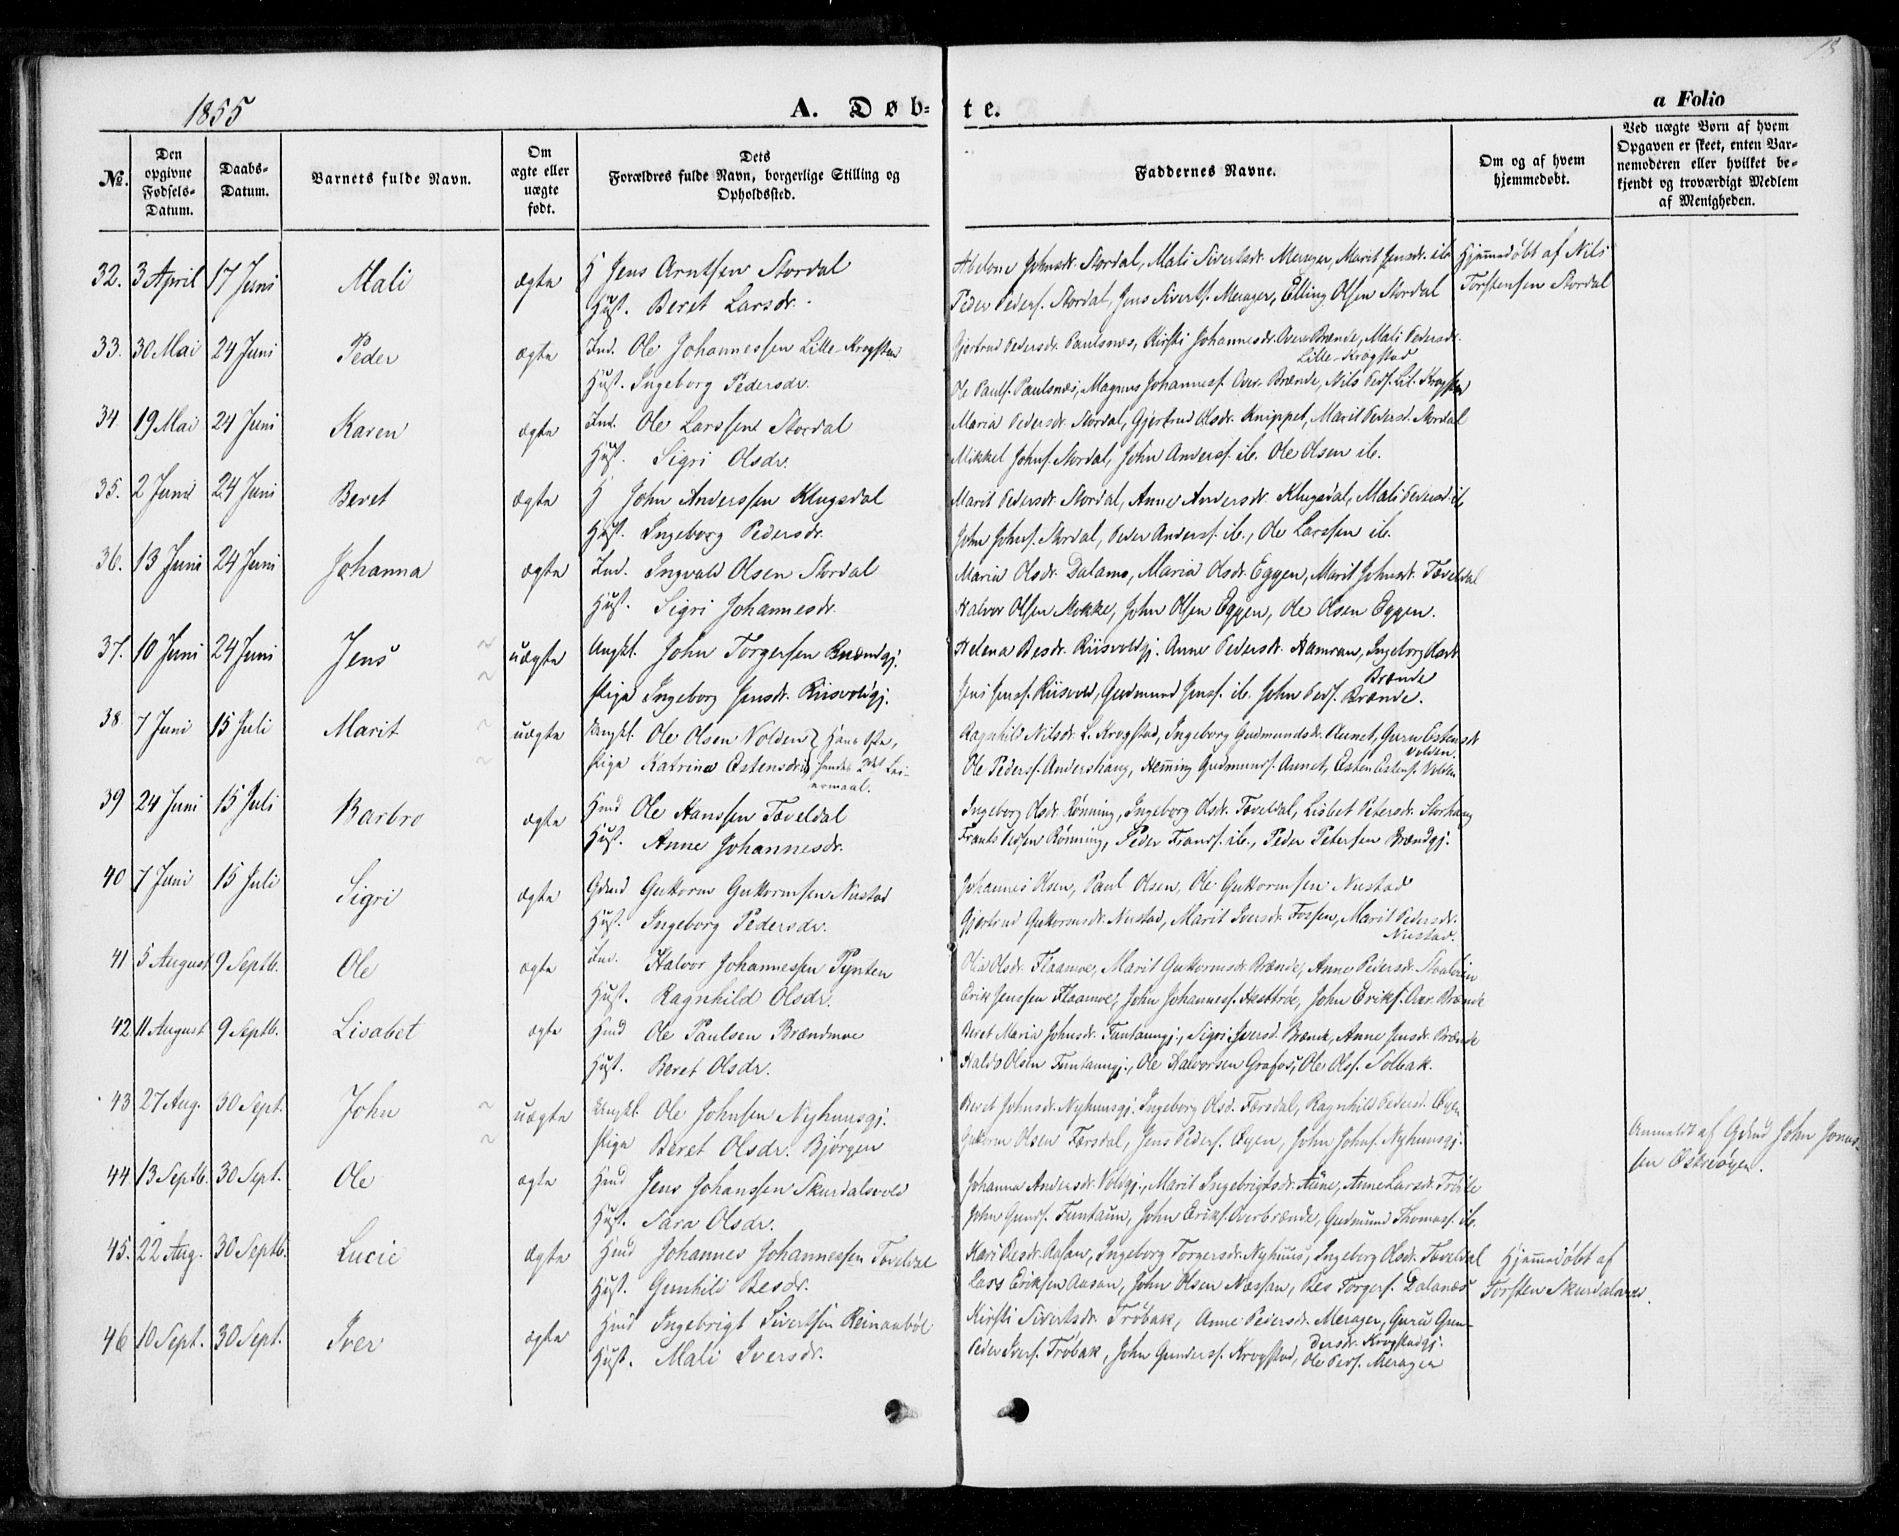 1855
A. Døbte.
a Folio
18
No.
Den opgivne Fødsels-Datum.
Daabs-Datum.
Barnets fulde Navn.
Om ægte eller uægte født.
Dets Forældres fulde Navn, borgerlige Stilling og Opholdssted.
Faddernes Navne.
Om og af hvem hjemmedøbt.
Ved uægte Børn af hvem Opgaven er skeet, enten Barnemoderen eller hvilket bekjendt og troværdigt Medlem af Menigheden.
32. 3 April 17 Juni Mali ægte H Jens Arntsen Stordal
Hust. Beret Larsdr.
Abelone Johnsdr. Stordal, Mali Sivertsdr. Merager, Marit Jensdr. ib
Peder Peders. Stordal, Jens Siverts. Merager, Elling Olsen Stordal
Hjemmedøbt af Nils
Torstensen Stordal
33. 30 Mai 24 Juni Peder ægte Ind. Ole Johannessen Lille-Krogstad
Hust. Ingeborg Pedersdr.
Gjertrud Pedersdr. Paulsnæs, Kirsti Johannesdr. Over Brænde, Mali Pedersdr.
Lille-Krogstad
Ole Pauls. Paulsnæs, Magnus Johanness. Over Brænde, Nils Peds. Lit. Krogstad
34 19 Mai 24 Juni Karen ægte Ind. Ole Larssen Stordal
Hust. Sigri Olsdr.
Maria Pedersdr. Stordal, Gjertrud Olsdr. Knippet, Marit Pedersd. Stordal
Mikkel Johns. Stordal, John Anderss. ib. Ole Olsen ib.
35. 2 Juni 24 Juni Beret ægte H John Anderssen Klugsdal
Hust. Ingeborg Pedersdr.
Marit Pedersdr. Stordal, Anne Andersdr. Klugsdal, Mali Pedersd. ib
John Johns. Stordal, Peder Anderss. ib., Ole Larssen ib.
36. 13 Juni 24 Juni Johanna ægte Ind. Ingvald Olsen Stordal
Hust. Sigri Johannesdr.
Maria Olsdr. Dalamo, Maria Olsdr. Eggen, Marit Johnsdr. Tæveldal
Halvor Olsen Mokke, John Olsen Eggen, Ole Olsen Eggen.
37. 10 Juni 24 Juni Jens uægte Ungkl. John Torgersen Brændgj.
Pige Ingeborg Jensdr. Riisvoldgj.
Helena Besdr. Riisvoldgj. Anne Pedersdr. Hamran, Ingeborg Olsdr
Brænde
Jens Jenss. Riisvold, Gudmund Jenss. ib. John Peds. Brænde.
38. 7 Juni 15 Juli Marit uægte Ungkl. Ole Olsen Volden } Hans 1ste,
Pige Katrina Estensdr. } hendes 2det Lei-
ermaal.
Ragnhild Nilsdr. L. Krogstad, Ingeborg Gudmundsdr. Aunet, Guru Estensdr
Volden.
Ole Pederss. Andershaug, Hemming Gudmunds. Aunet, Esten Estens. Volden
39 24 Juni 15 Juli Barbro ægte Hmd Ole Hanssen Tæveldal
Hust. Anne Johannesdr.
Ingeborg Olsdr. Rønning, Ingeborg Olsdr. Tæveldal, Lisbet Petersdr. Storhaug
Frants Pedsen Rønning, Peder Frands. ib., Peder Petersen Brændgj.
40 7 Juni 15 Juli Sigri ægte Gdmd Guttorm Guttormsen Nustad
Hust. Ingeborg Pedersdr.
Johannes Olsen, Paul Olsen, Ole Guttormsen Nustad
Gjertrud Guttormsdr. Nustad, Marit Iversdr. Fossen, Marit Pedersdr.
Nustad.
41 5 August 9 Septb. Ole ægte Ind. Halvor Johannessen Pynten
Hust. Ragnhild Olsdr.
Olia Olsdr. Flaamoe, Marit Guttormsdr. Brænde, Anne Pedersdr.
Erik Jenssen Flaamoe, John Johanness. Hesttrøe, John Eriks. Over Brænde
42 11 August 9 Septb. Lisabet ægte Hmd Ole Paulsen Brændmoe
Hust. Beret Olsdr.
Beret Maria Johnsdr. Funtaungj., Sigri Iversd. Brænde, Anne Jensdr. Brænde
Haldo Olsen Funtaungj., Ole Halvorsen Grafos, Ole Ols. Solbak.
43 27 Aug. 30 Sept. John uægte Ungkl. Ole Johnsen Nyhuusgj.
Pige Beret Olsdr. Bjørgen
Beret Johnsdr. Nyhuusgj. Ingeborg Olsd. Færsdal, Ragnhild Pedersd. Øyen
Guttorm Olsen Færsdal, Jens Peders. Øyen, John Johns. Nyhuusgj.
Anmeldt af Gdmd John Jonas-
sen Østreøyen.
44 13 Septb. 30 Sept. Ole ægte Hmd Jens Johanssen Skurdalsvold
Hust. Sara Olsdr.
Johanna Andersdr. Voldgj., Marit Ingebrigtsdr. Aune, Anne Larsdr. Trøite
John Gunds. Funtaun, John Eriks. Overbrænde, Gudmund Thomass. ib.
45. 22 Aug. 30 Septb. Lucie ægte Hmd Johannes Johannessen Tæveldal
Hust. Gunhild Besdr.
Kari Olsdr. Aasan, Ingeborg Torgersdr. Nyhuus, Ingeborg Olsdr. Tæveldal
Lars Eriksen Aasan, John Olsen Næssan, Bes Torgers. Dalanæs
Hjemmedøbt af
Torsten Skurdalsvold.
46 10 Sept. 30 Sept. Iver ægte Hmd Ingebrigt Sivertsen Reinaabøl
Hust. Mali Iversdr.
Kirsti Sivertsdr. Trøbak, Anne Pedersdr. Merager, Guru Gun-
dersdr. Krogstadgj.
Peder Ivers. Trøbak, John Gunders. Krogstad, Ole Peds. Merager